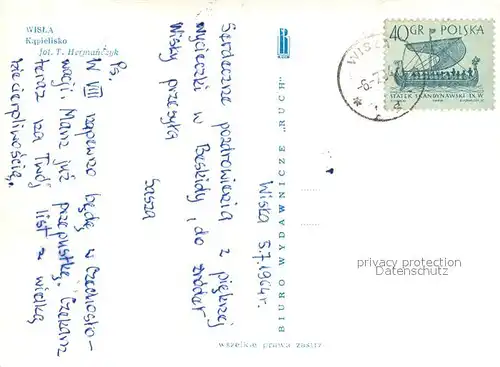 WISŁA
Kąpielisko
fot. T. Hermańczyk
Serdeczne pozdrowienia z pięknej
wycieczki w Beskidy, do źródeł
Wisły przesyła
Sasza
Wisła 5.7.1964 r.
Ps.
W VIII napewno będę w Czechosło-
wacji. Masz już przepustkę. Czekam
teraz na Twój list z wielką
niecierpliwością.
BIURO WYDAWNICZE „RUCH"
wszelkie prawa zastrz.
40 GR POLSKA
STATEK SKANDYNAWSKI-IX W.
WISŁA
-6-7
privacy protection
Datenschutz